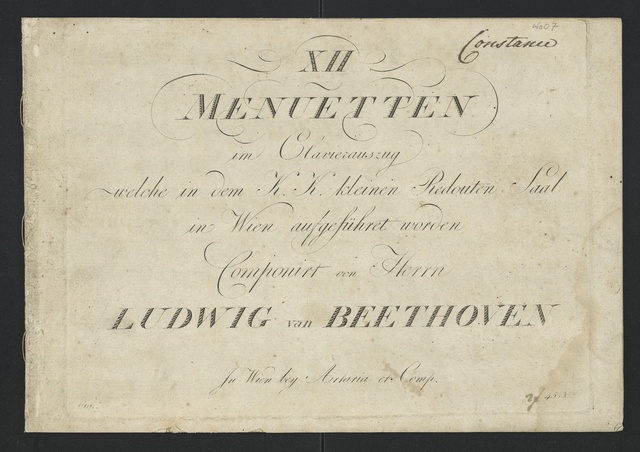 WoO 7
Constance
XII
MENUETTEN
im Clavierauszug
welche in dem K. K. kleinen Redouten Saal
in Wien aufgeführet worden
Componirt von Herrn
LUDWIG van BEETHOVEN
In Wien bey Artaria et Comp.